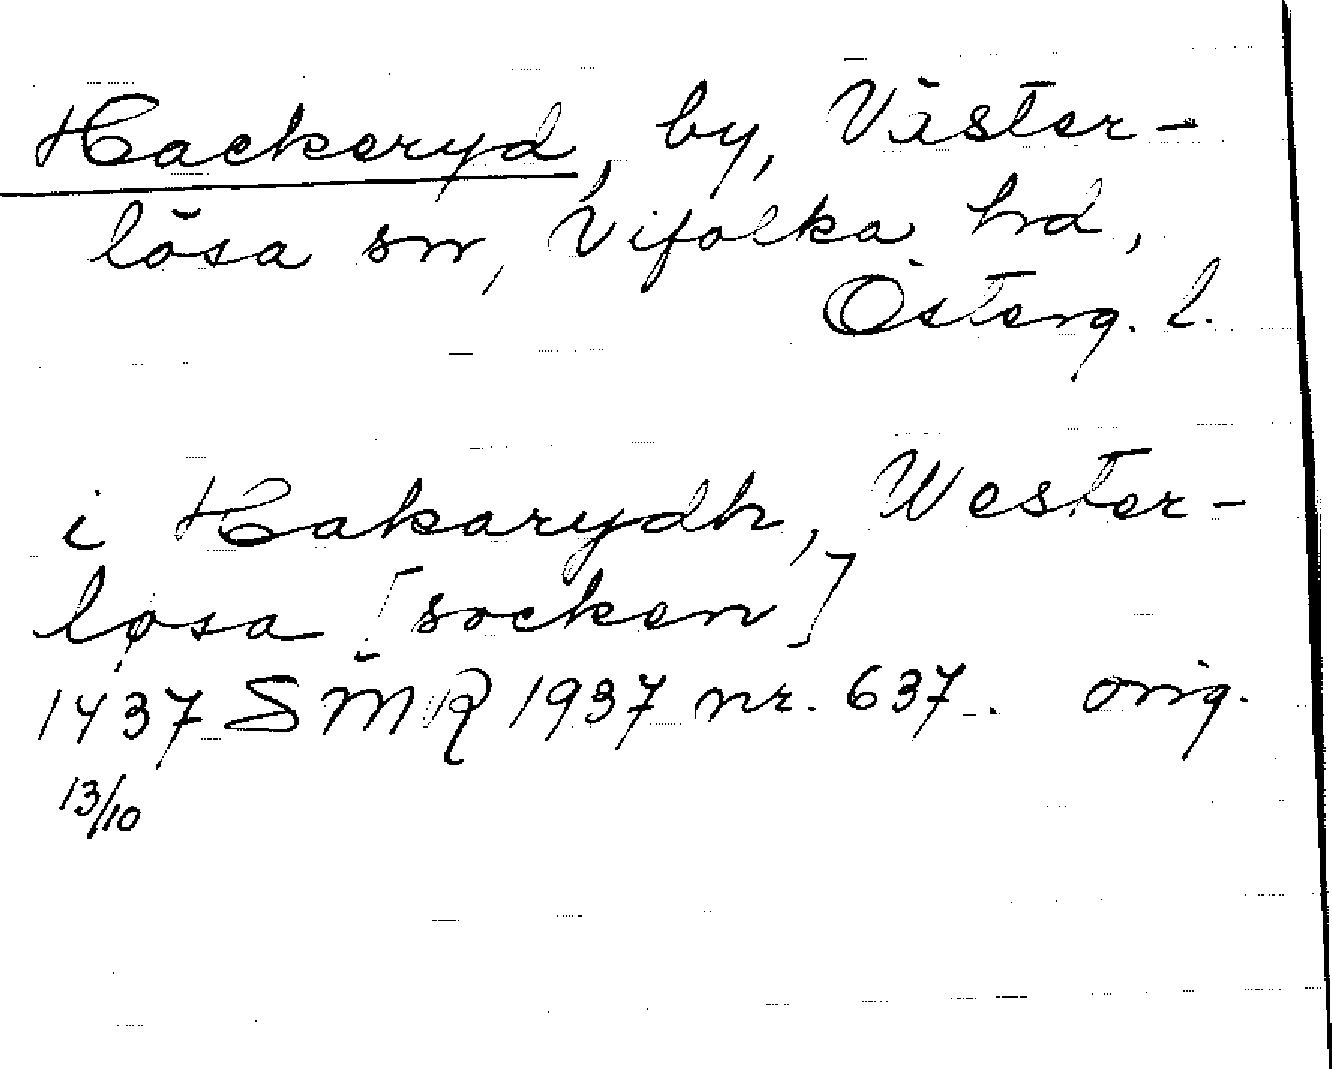 Hackeryd, by, Väster-
lösa sn, Vifolka hd,
Österg. l.
i Hakarydh, Wester-
løsa [socken]
1437 SMR 1937 nr. 637. orig.
13/10